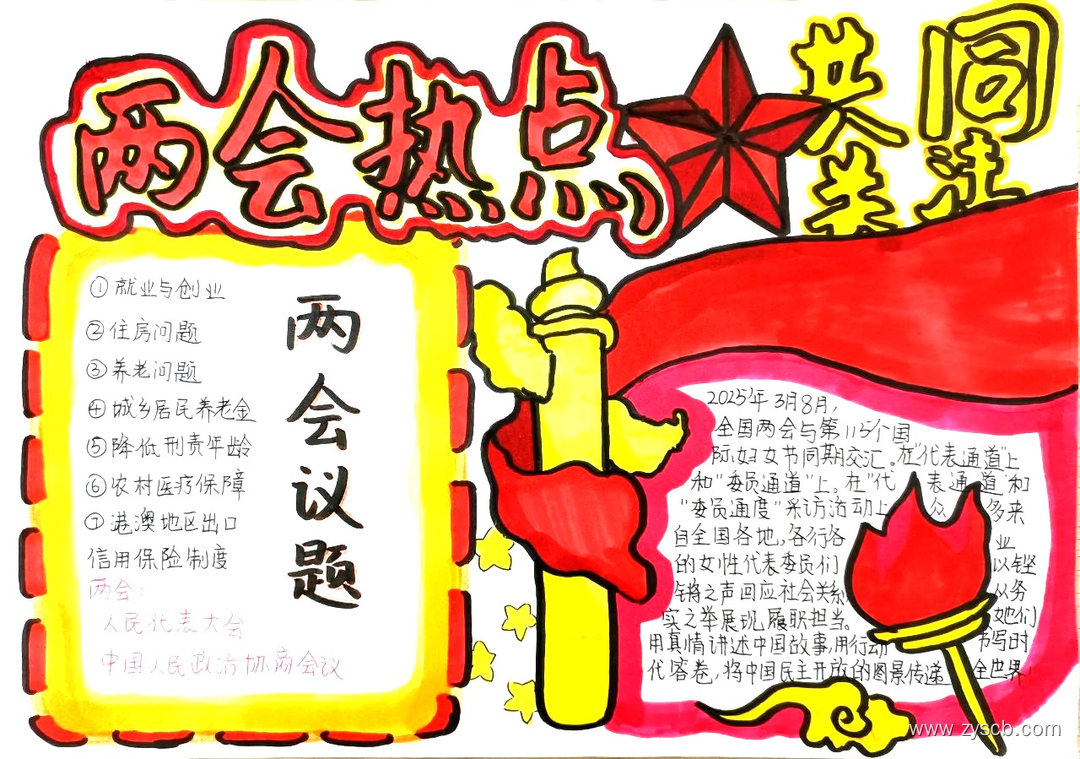 两会热点
共同
关注
两会议题
①就业与创业
②住房问题
③养老问题
④城乡居民养老金
⑤降低刑责年龄
⑥农村医疗保障
⑦港澳地区出口
信用保险制度
两会:
人民代表大会
中国人民政治协商会议
2025年3月8月,
全国两会与第115个国
际妇女节同期交汇。在“代表通道”上
和“委员通道”上。在“代表通道”和
“委员通度”采访活动上 众多来
自全国各地,各行各业
的女性代表委员们以铿
锵之声回应社会关系 从务
实之举展现履职担当。她们
用真情讲述中国故事用行动书写时
代答卷,将中国民主开放的图景传递全世界!
www.zyscb.com